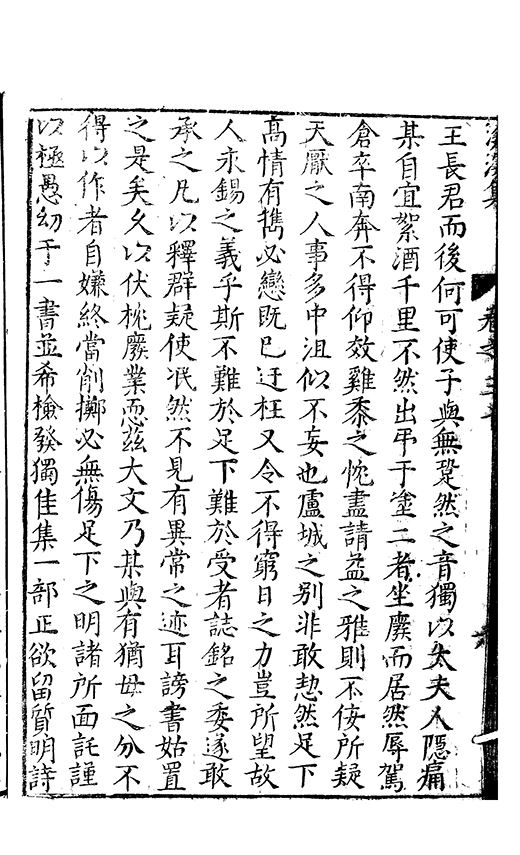 王長君而後何可使子與無跫然之音獨以太夫人隱痛
某自宜絮酒千里不然出弔于塗二者坐廢而居然辱駕
倉卒南奔不得仰效雞黍之忱盡請益之雅則不佞所疑
天厭之人事多中沮似不妄也盧城之别非敢恝然足下
高情有攜必戀既已迂枉又令不得窮日之力豈所望故
人永錫之義乎斯不難於足下難於受者誌銘之委遂敢
承之凡以釋群疑使泯然不見有異常之迹耳謗書姑置
之是矣久以伏枕廢業恧玆大文乃某與有猶母之分不
得以作者自嫌終當削擲必無傷足下之明諸所面託謹
以極愚幼于一書並希檢發獨佳集一部正欲留質明詩